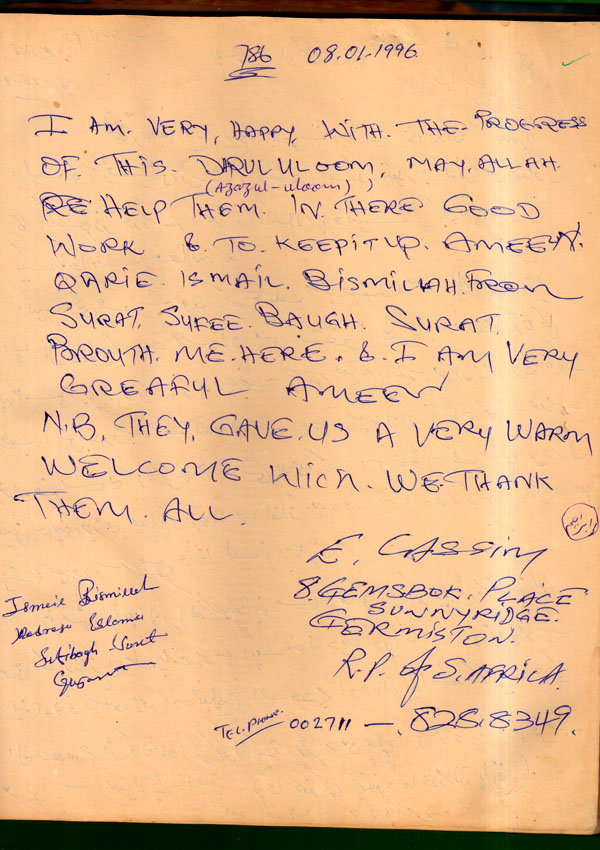 786 08.01.1996
I AM. VERY, HAPPY, WITH. THE. PROGRESS
OF. THIS. DARUL ULOOM, MAY. ALLAH.
(Azazul-uloom)
HELP THEM. IN. THERE GOOD
WORK & TO. KEEP IT UP. AMEEN.
QARIE. ISMAIL. BISMILLAH. FROM
SURAT, SUFEE. BAUGH. SURAT.
BROUTH. ME. HERE. & I AM VERY
GREAFUL AMEEN
N.B, THEY, GAVE. US A VERY WARM
WELCOME WICH. WE. THANK
THEM. ALL.
E. CASSIM
8. GEMSBOK. PLACE
SUNNYRIDGE.
GERMISTON.
R.P. of S. AFRICA.
TEL. PHONE. 002711 —. 828.8349.
Ismail Bismillah
Madrasa Islamia
Sufibagh Surat
Gujarat